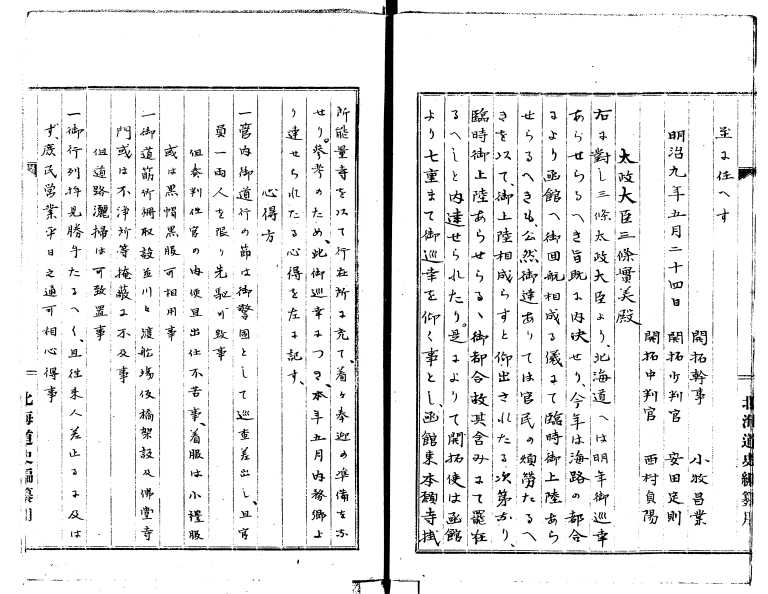 至に任へす
明治九年五月二十四日
開拓幹事　小牧昌業
開拓少判官　安田定則
開拓中判官　西村貞陽
太政大臣三條實美殿
右に對し三條太政大臣より、北海道へは明年御巡幸
あらせらるへき旨既に内決せり、今年は海路の都合
により函館へ御回航相成る儀にて臨時御上陸あら
せらるへきも公然御達ありては官民の煩勞たるへ
きを以て、御上陸相成らすと仰出されたる次第なり、
臨時御上陸あらせらるゝ御都合故其含みにて罷在
るへしと内達せられたり。是によりて開拓使は函館
より七重まて御巡幸を仰く事とし、函館東本願寺掛
所能量寺を以て行在所に充て、着々奉迎の準備をな
せり。参考のため、此御巡幸につき、本年五月内務卿よ
り達せられたる心得を左に記す、
心得方
一管内御道行の節は御警固として巡査差出し、且官
員一両人を限り先駆可致事
但奏判任官の内便宜出仕不苦事、着服は小禮服
或は黒帽黒服可相用事
一御道筋竹柵取設並川々渡船場仮橋架設及佛堂寺
門或は不浄所等掩蔽に不及事
但道路灑掃は可致置事
一御行列拝見勝手たるへく、且往来人差止るに及は
す、庶民営業平日之通可相心得事
北海道史編纂用
北海道史編纂用